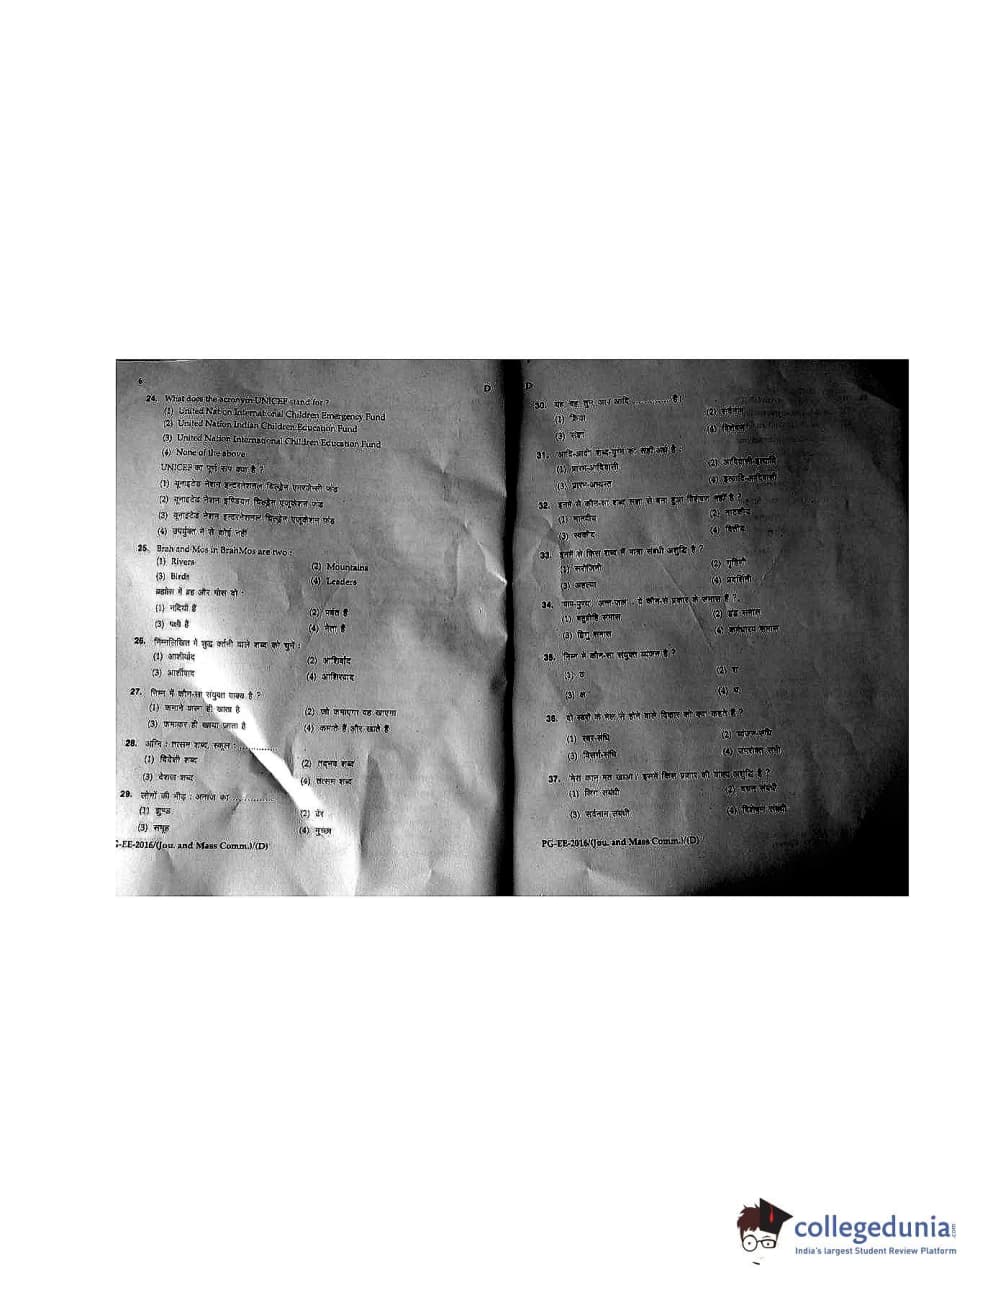 6
D
24. What does the acronym UNICEF stand for ?
(1) United Nation International Children Emergency Fund
(2) United Nation Indian Children Education Fund
(3) United Nation International Children Education Fund
(4) None of the above
UNICEF का पूर्ण रूप क्या है ?
(1) यूनाइटेड नेशन इन्टरनेशनल चिल्ड्रेन एमरजेन्सी फंड
(2) यूनाइटेड नेशन इण्डियन चिल्ड्रेन एजूकेशन फंड
(3) यूनाइटेड नेशन इन्टरनेशनल चिल्ड्रेन एजूकेशन फंड
(4) उपर्युक्त में से कोई नहीं
25. Brah and Mos in BrahMos are two :
(1) Rivers
(2) Mountains
(3) Birds
(4) Leaders
ब्रह्मोस में ब्रह और मोस दो :
(1) नदियाँ हैं
(2) पर्वत हैं
(3) पक्षी हैं
(4) नेता हैं
26. निम्नलिखित में शुद्ध वर्तनी वाले शब्द को चुनें :
(1) आशीर्वाद
(2) आशिर्वाद
(3) आर्शीवाद
(4) आशिरवाद
27. निम्न में कौन-सा संयुक्त वाक्य है ?
(1) कमाने वाला ही खाता है
(2) जो कमाएगा वह खाएगा
(3) कमाकर ही खाया जाता है
(4) कमाते हैं और खाते हैं
28. अग्नि : तत्सम शब्द, स्कूल : ............
(1) विदेशी शब्द
(2) तद्भव शब्द
(3) देशज शब्द
(4) तत्सम शब्द
29. लोगों की भीड़ : अनाज का ............
(1) झुण्ड
(2) ढेर
(3) समूह
(4) गुच्छा
G-EE-2016/(Jou. and Mass Comm.)/(D)
D
30. यह, वह, तुम, आप आदि ............ हैं।
(1) क्रिया
(2) सर्वनाम
(3) संज्ञा
(4) विशेषण
31. 'आदि-आदी' शब्द-युग्म का सही अर्थ है :
(1) प्रारम्भ-आदिवासी
(2) आदिवासी-इत्यादि
(3) प्रारम्भ-अभ्यस्त
(4) इत्यादि-आदिवासी
32. इनमें से कौन-सा शब्द संज्ञा से बना हुआ विशेषण नहीं है ?
(1) मानवीय
(2) नाटकीय
(3) स्वकीय
(4) वित्तीय
33. इनमें से किस शब्द में मात्रा संबंधी अशुद्धि है ?
(1) सरोजिनी
(2) गृहिणी
(3) अहल्या
(4) प्रदर्शिनी
34. 'पाप-पुण्य', 'अन्न-जल' - ये कौन-से प्रकार के समास हैं ?
(1) बहुव्रीहि समास
(2) द्वंद्व समास
(3) द्विगु समास
(4) कर्मधारय समास
35. निम्न में कौन-सा संयुक्त व्यंजन है ?
(3) क्ष
36. दो स्वरों के मेल से होने वाले विकार को क्या कहते हैं ?
(1) स्वर-संधि
(2) व्यंजन-संधि
(3) विसर्ग-संधि
(4) उपरोक्त सभी
37. 'मेरा कान मत खाओ।' इसमें किस प्रकार की वाक्य अशुद्धि है ?
(1) लिंग संबंधी
(2) वचन संबंधी
(3) सर्वनाम संबंधी
(4) विशेषण संबंधी
PG-EE-2016/(Jou. and Mass Comm.)/(D)
collegedunia.com
India's largest Student Review Platform